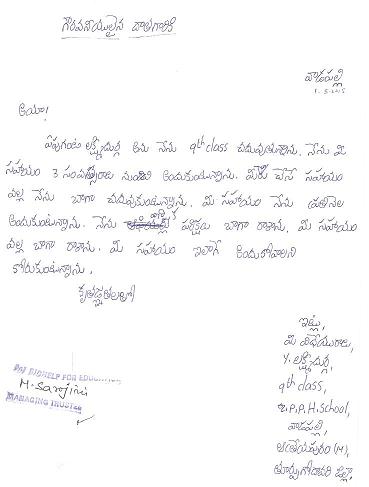 గౌరవనీయులైన దాతగారికి
వాడపల్లి
అయ్యా!
లక్ష్మీదుర్గ అను నేను 9th class చదువుతున్నాను. నేను మీ
సహాయం 3 సంవత్సరాల నుండి అందుకుంటున్నాను. మీరు చేసే సహాయం
వల్ల నేను బాగా చదువుకున్నాను. మీ సహాయం నేను ప్రతినెల
అందుకుంటున్నాను. నేను పరీక్షలు బాగా రాశాను. మీ సహాయం
వల్ల బాగా రాశాను. మీ సహాయం ఇలాగే అందుకోవాలని
కోరుకుంటున్నాను.
కృతజ్ఞతలతో
ఇట్లు,
మీ విధేయురాలు,
Y. లక్ష్మీదుర్గ,
9th class,
Z.P.P.H.School,
వాడపల్లి,
ఆత్రేయపురం (M),
తూర్పుగోదావరి జిల్లా.
HELP FOR EDUCATION
M. Sarojini
MANAGING TRUSTEE